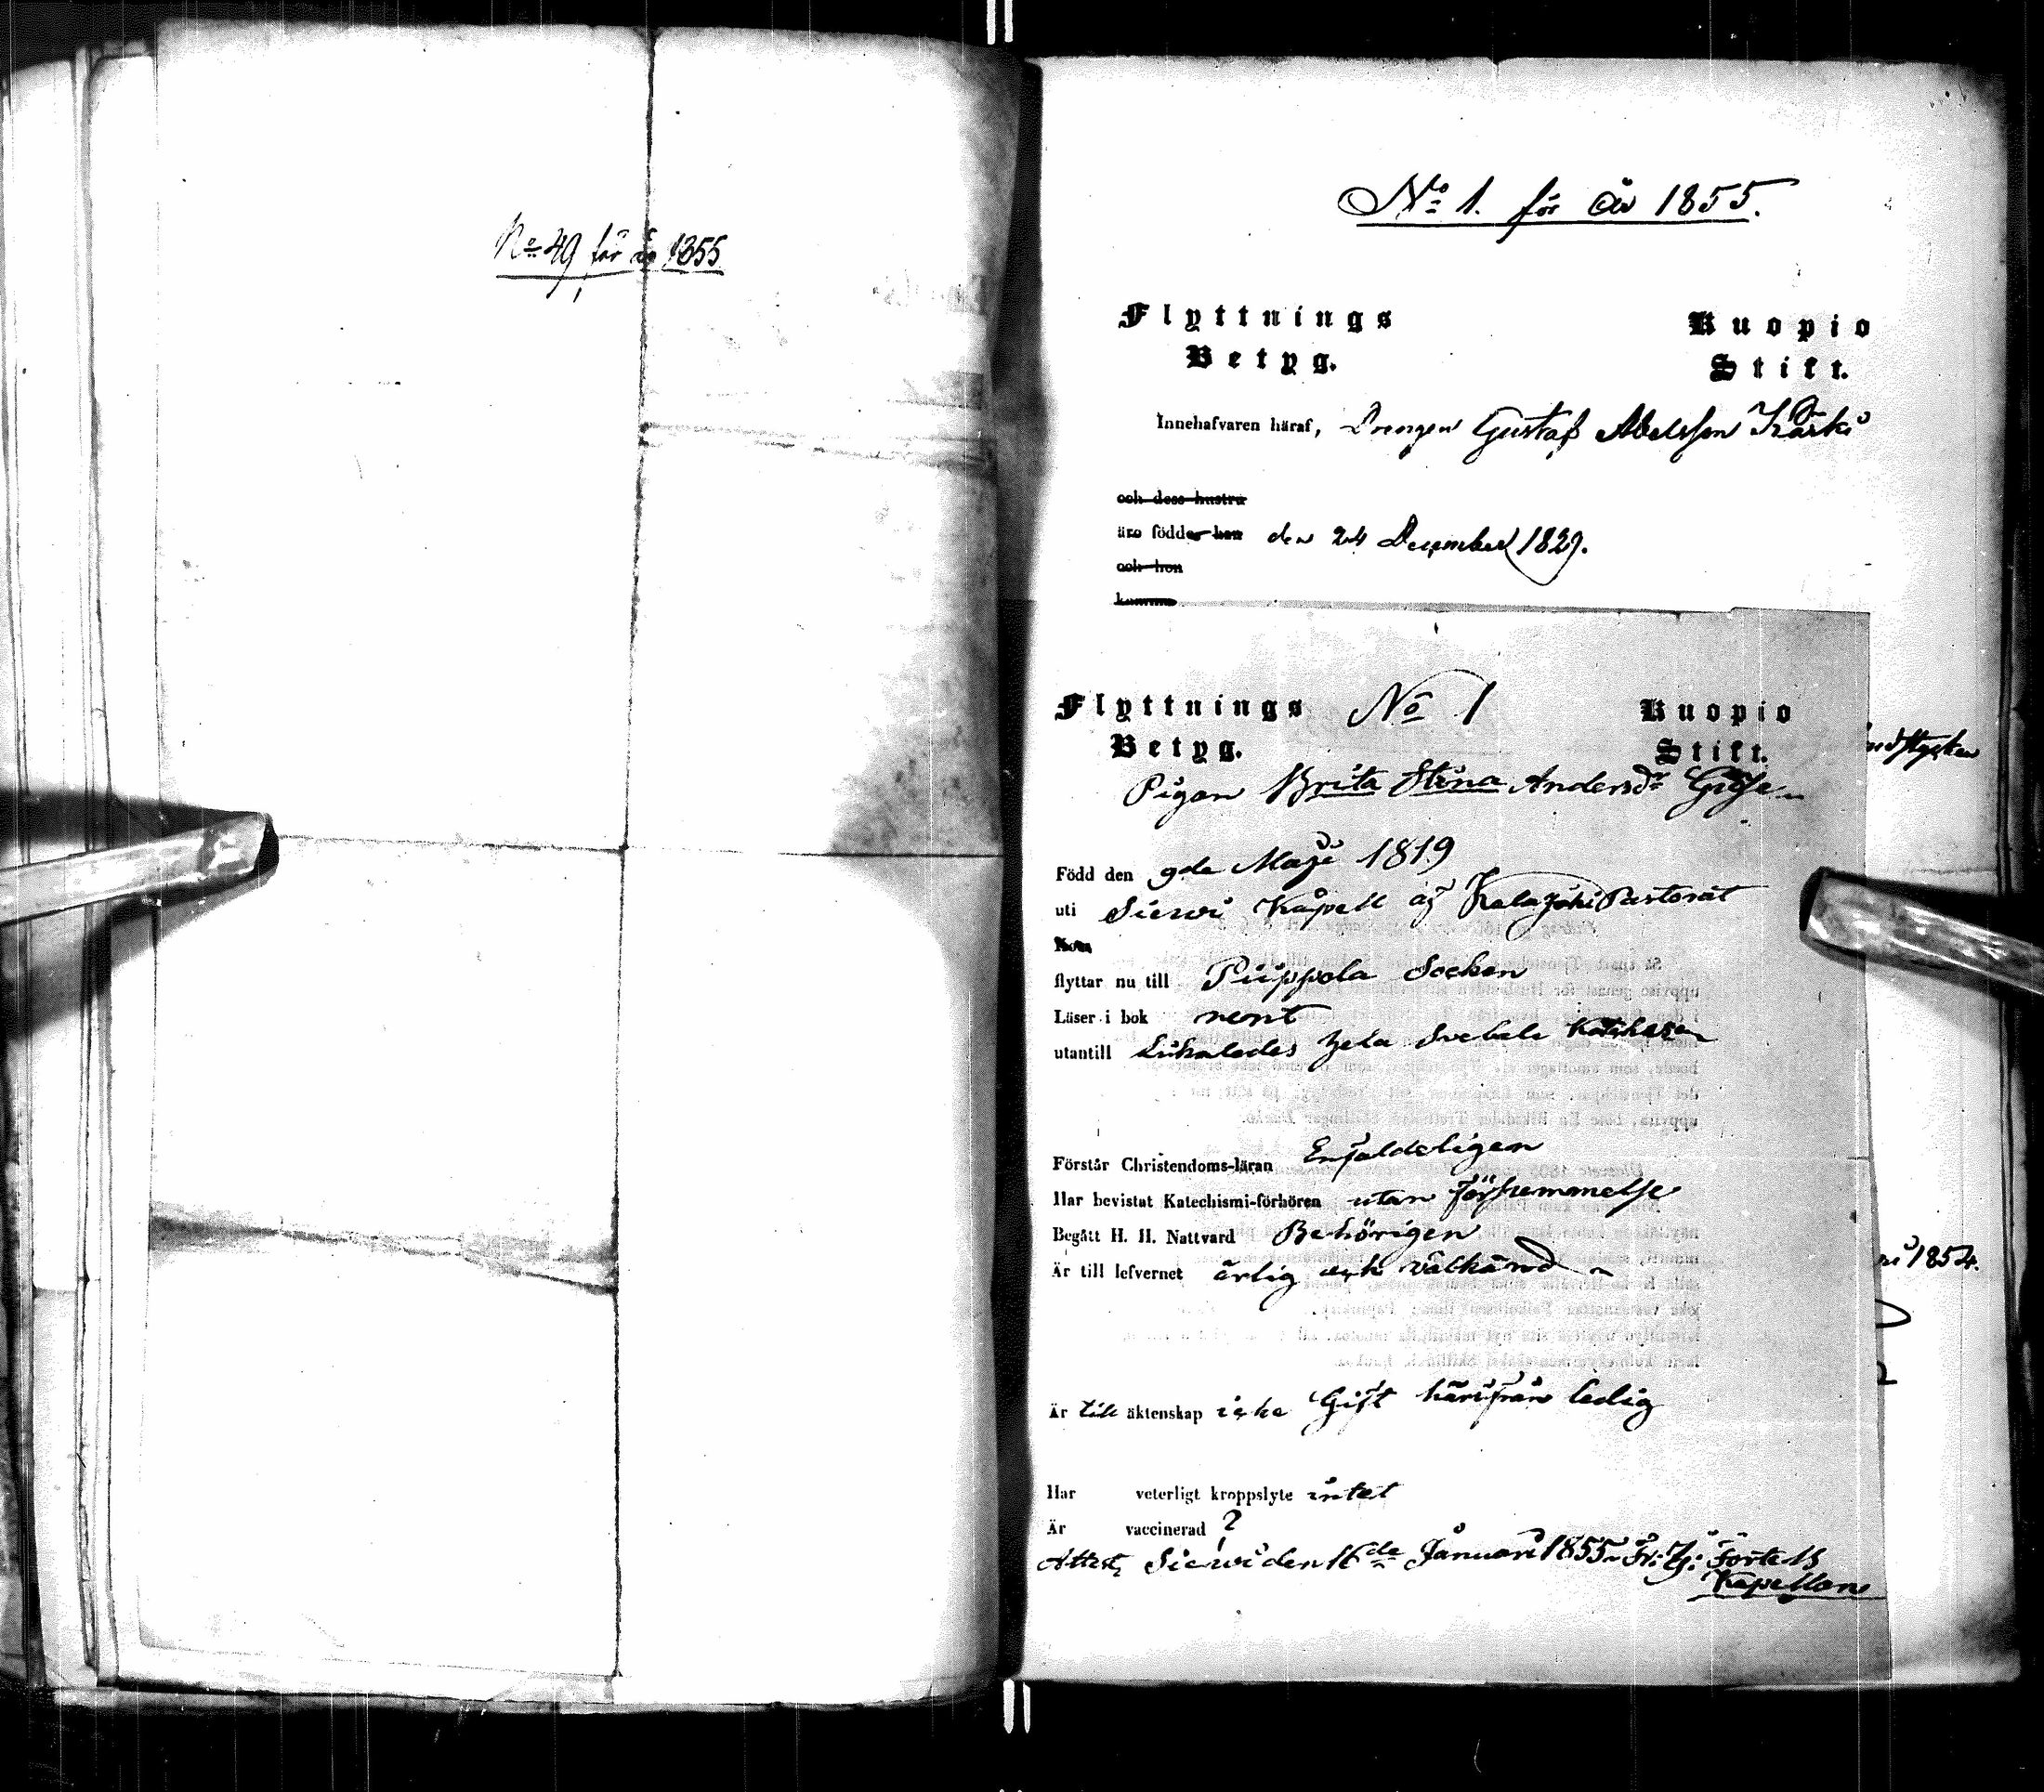 No 49 för år 1855
No 1. för år 1855.
Flyttnings Kuopio
Betyg. Stift.
Innehafvaren häraf, Drengen Gustaf Abelsson Kärki
och dess hustru
äro födde han den 24 December 1829.
och hon
komma
Flyttnings No 1 Kuopio
Betyg. Stift.
Pigan Brita Stina Andersdr
Född den 9de Maji 1819
uti Siewi Kapell af Kalajoki Pastorat
Kom
flyttar nu till Piippola Socken
Läser i bok rent
utantill Likaledes hela Svebeli Katekesen
Förstår Christendoms-läran Enfaldeligen
Har bevistat Katechismi-förhören utan försummelse
Begått H. H. Nattvard Behörigen
Är till lefvernet ärlig och välkänd
Är till äktenskap icke Gift härifrån ledig
Har veterligt kroppslyte intet
Är vaccinerad ?
Attest, Siewi den 16de Januari 1855
Kapellan
1854.